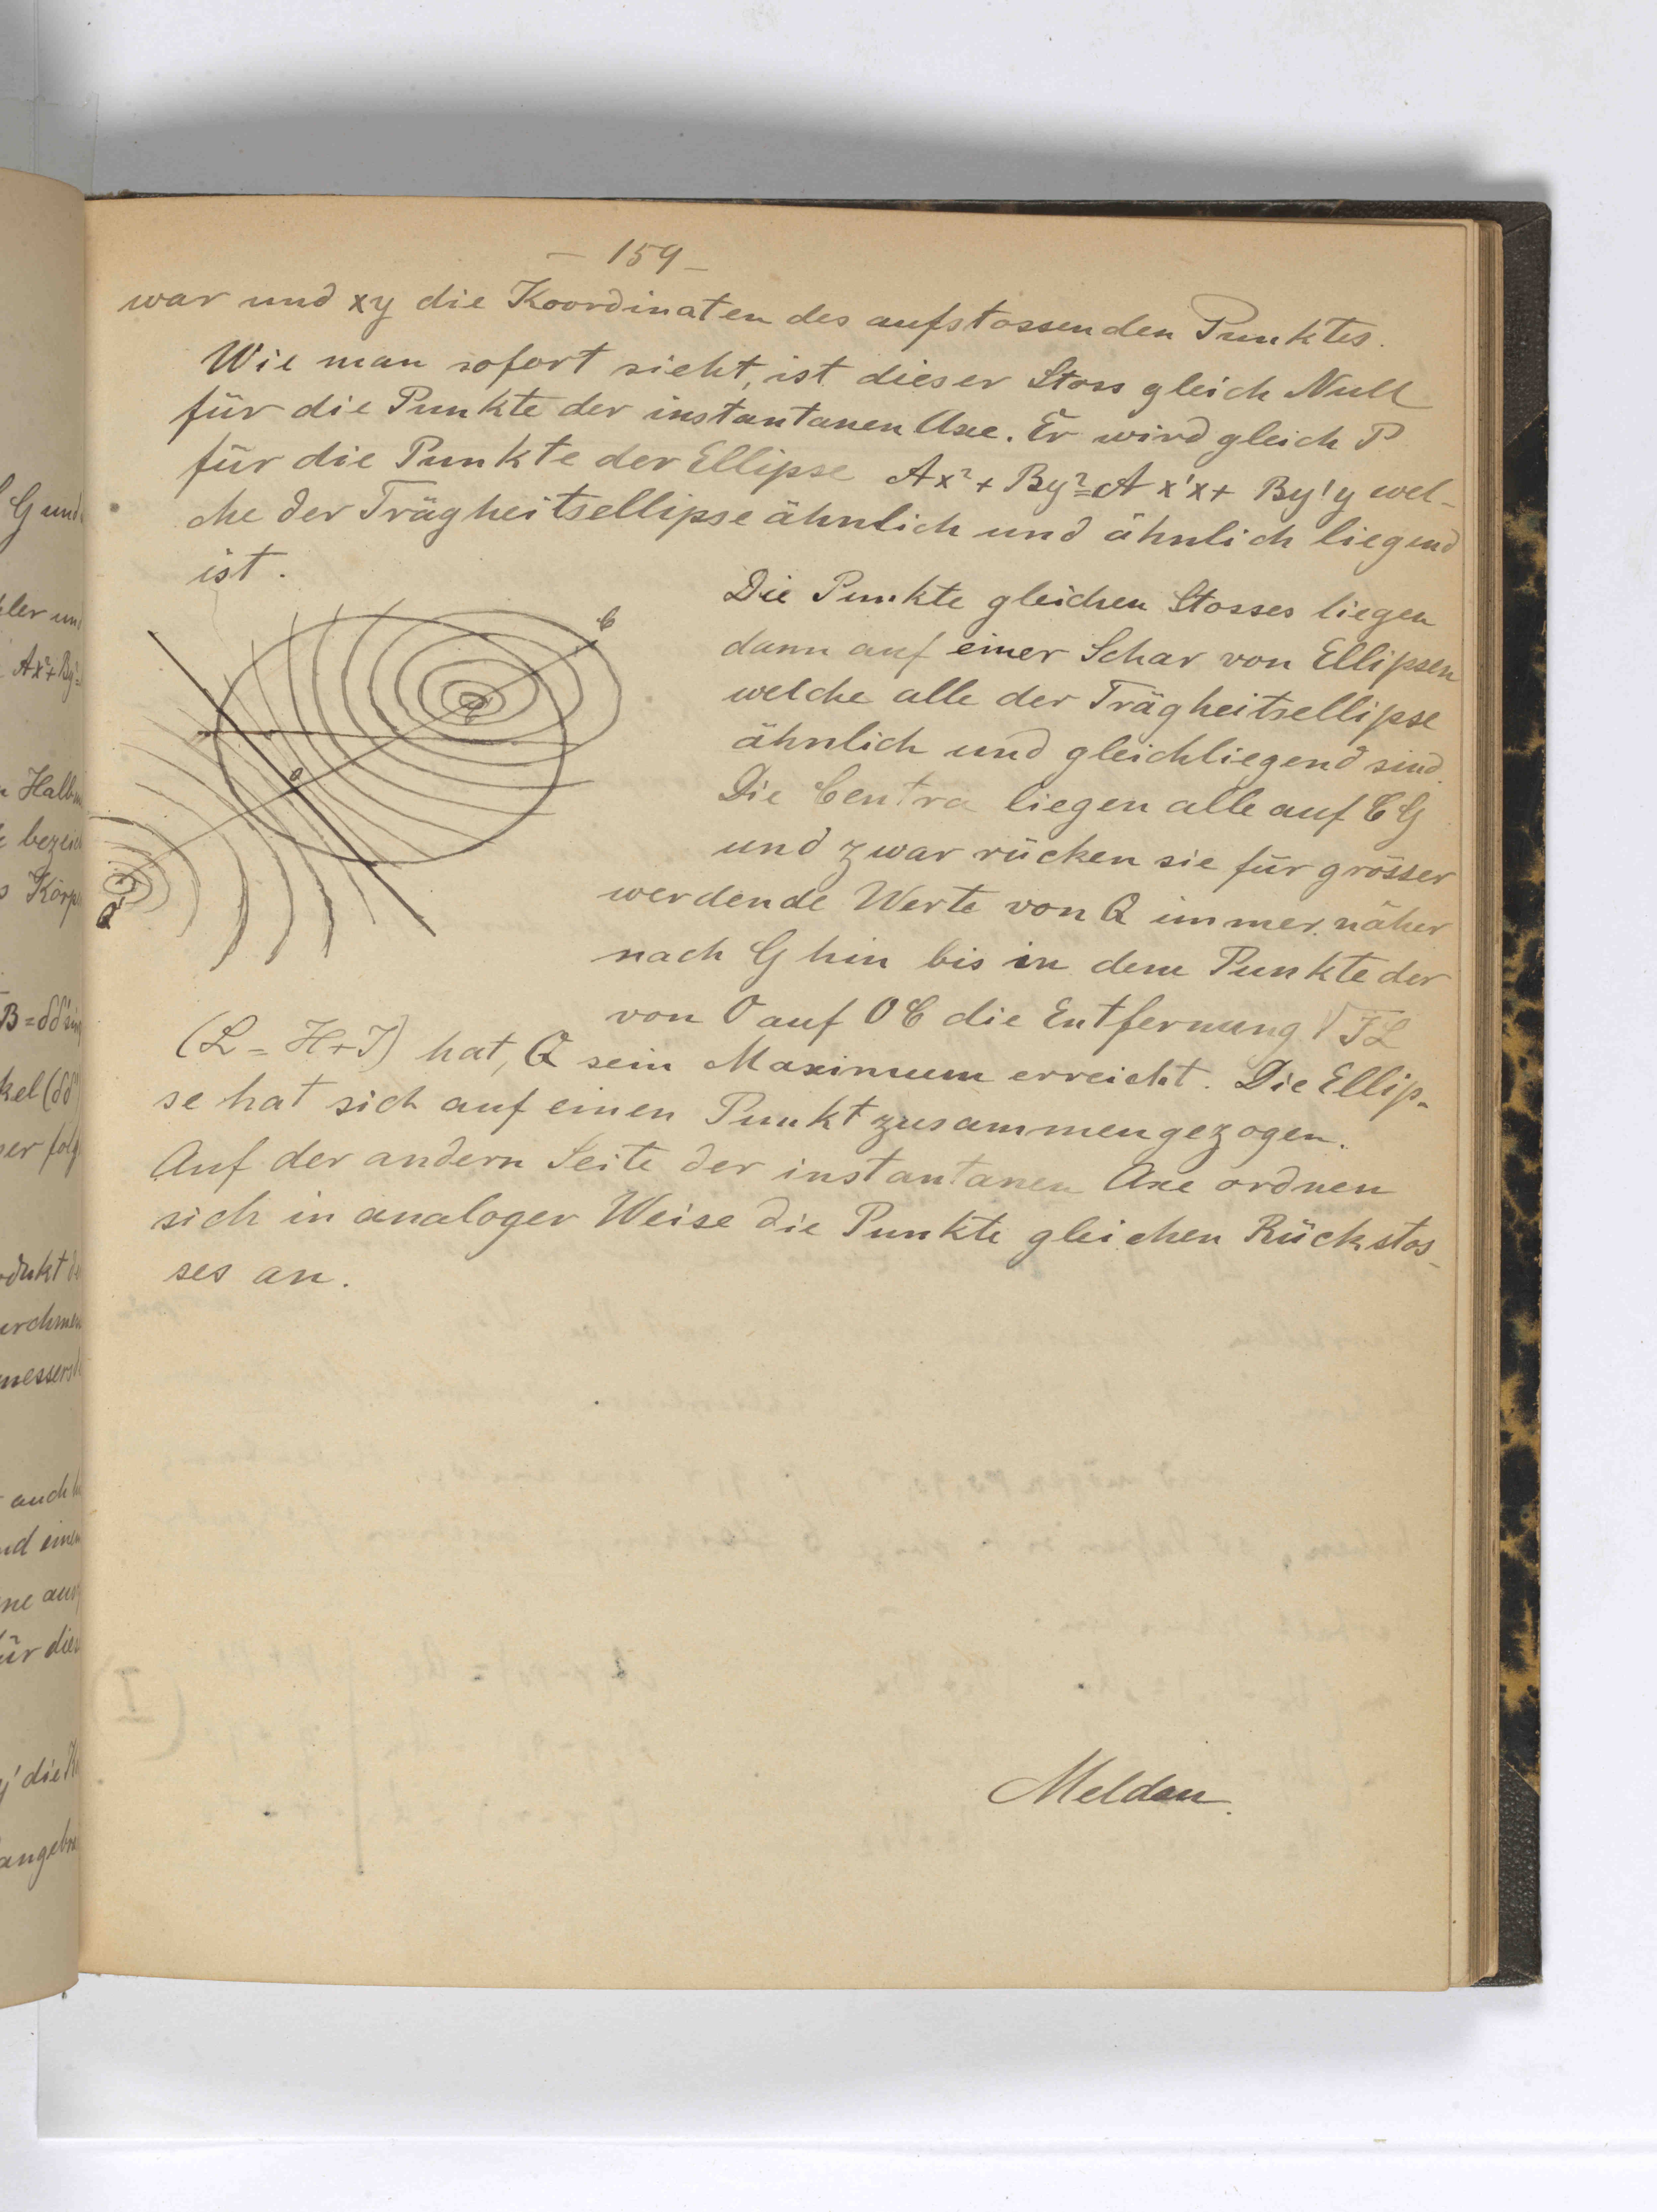 - 159 -
war und xy die Koordinaten des aufstossenden Punktes.
Wie man sofort sieht, ist dieser Stoss gleich Null
für die Punkte der instantanen Axe. Er wird gleich P
für die Punkte der Ellipse Ax² + By² = Ax'x + By'y wel-
che der Trägheitsellipse ähnlich und ähnlich liegend
ist.
Die Punkte gleichen Stosses liegen
dann auf einer Schar von Ellipsen
welche alle der Trägheitsellipse
ähnlich und gleichliegend sind.
Die Centra liegen alle auf CG
und zwar rücken sie für grösser
werdende Werte von Q immer näher
nach G hin bis in dem Punkte der
von O auf OC die Entfernung √JL
(L = H+J) hat, Q sein Maximum erreicht. Die Ellip-
se hat sich auf einen Punkt zusammengezogen.
Auf der andern Seite der instantanen Axe ordnen
sich in analoger Weise die Punkte gleichen Rückstos-
ses an.
C
O
Q'
Meldau.
G und
Ax²+By²=
bezeich
B=δδ'sin
auch
für die
y' die